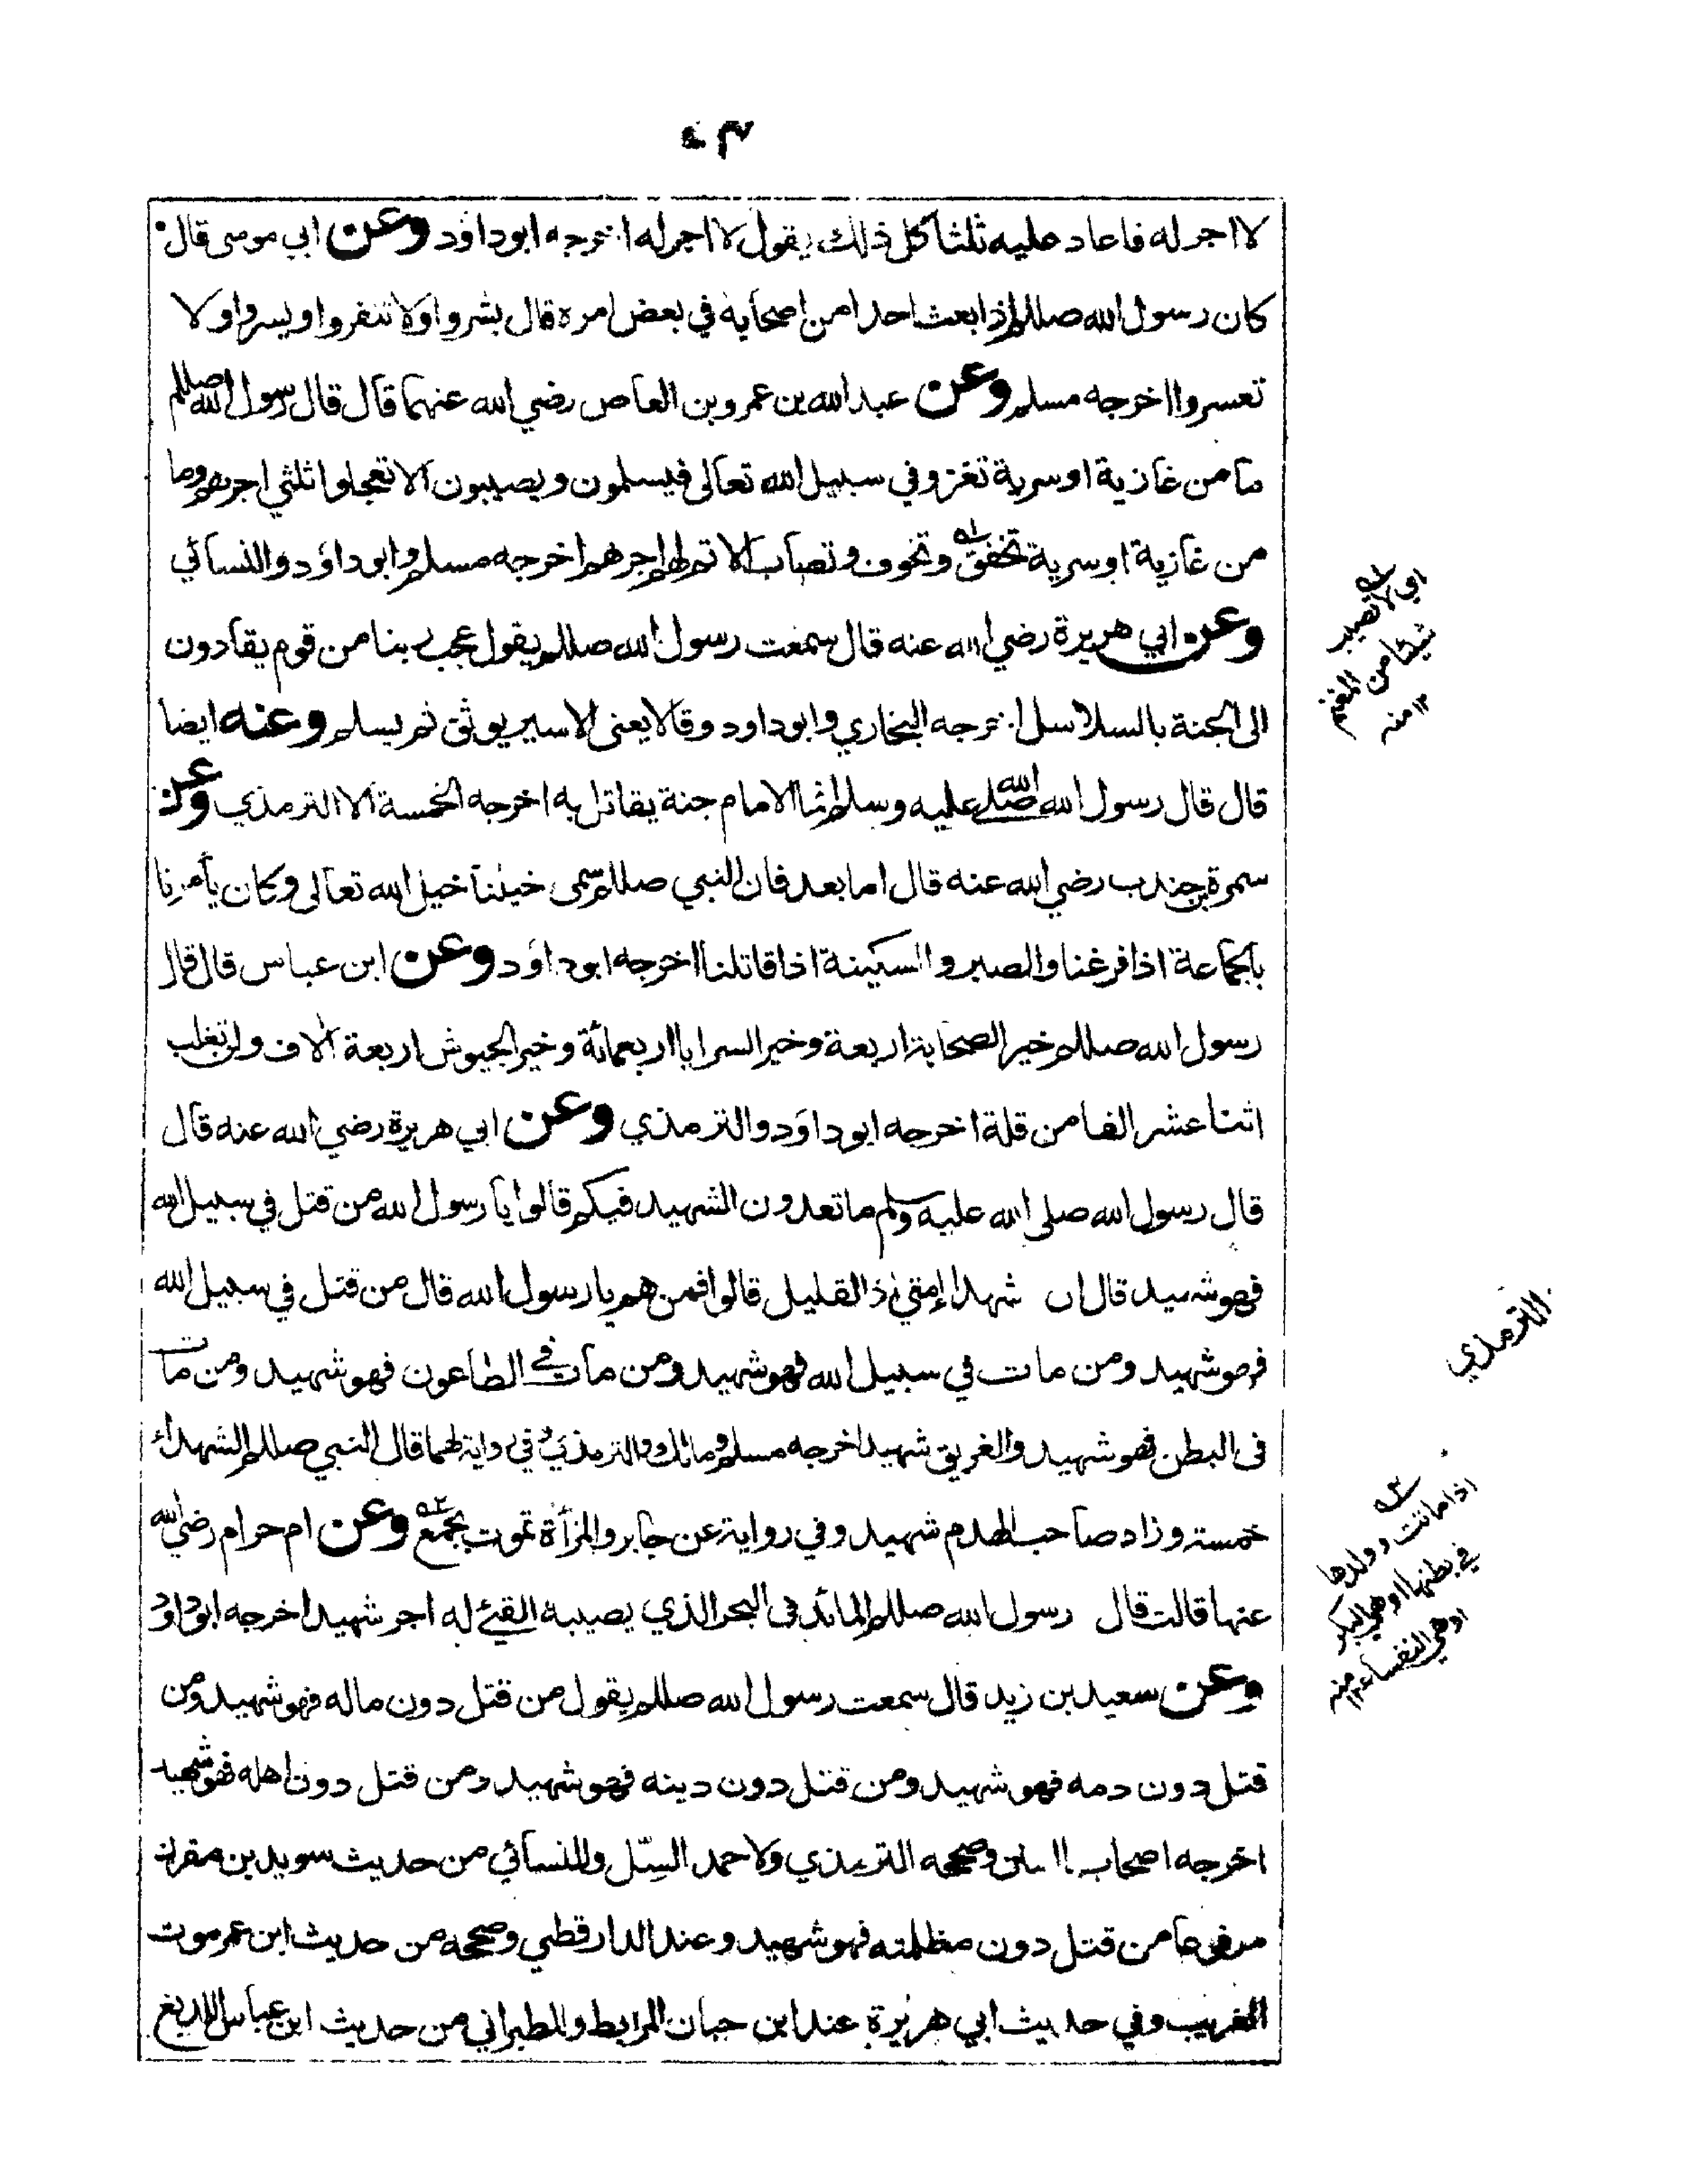 لا اجر له فاعاد عليه ثلثا كل ذلك يقول لا اجر له اخرجه ابوداود وعن ابي موسى قال
كان رسول الله صللم اذا بعث احدا من اصحابه في بعض امره قال بشروا ولا تنفروا ويسروا ولا
تعسروا اخرجه مسلم وعن عبد الله بن عمرو بن العاص رضي الله عنهما قال قال رسول الله صللم
ما من غازية او سرية تغزو في سبيل الله تعالى فيسلمون ويصيبون الا تعجلوا ثلثي اجرهم وما
من غازية او سرية تخفق وتخوف وتصاب الا تم لهم اجرهم اخرجه مسلم وابوداود والنسائي
وعن ابي هريرة رضي الله عنه قال سمعت رسول الله صللم يقول عجب ربنا من قوم يقادون
الى الجنة بالسلاسل اخرجه البخاري وابوداود وقالا يعنى الاسير يوثق ثم يسلم وعنه ايضا
قال قال رسول الله صلى الله عليه وسلم انما الامام جنة يقاتل به اخرجه الخمسة الا الترمذي وعن
سمرة بن جندب رضي الله عنه قال اما بعد فان النبي صللم سمى خيلنا خيل الله تعالى وكان يأمرنا
بالجماعة اذا فزعنا والصبر و السكينة اذا قاتلنا اخرجه ابوداود وعن ابن عباس قال قال
رسول الله صللم خير الصحابة اربعة وخير السرايا اربعمائة وخير الجيوش اربعة آلاف ولن تغلب
اثنا عشر الفا من قلة اخرجه ابوداود والترمذي وعن ابي هريرة رضي الله عنه قال
قال رسول الله صلى الله عليه وسلم ما تعدون الشهيد فيكم قالوا يا رسول الله من قتل في سبيل الله
فهو شهيد قال ان شهداء امتي اذا لقليل قالوا فمن هم يا رسول الله قال من قتل في سبيل الله
فهو شهيد ومن مات في سبيل الله فهو شهيد ومن مات في الطاعون فهو شهيد ومن مات
فى البطن فهو شهيد والغريق شهيد اخرجه مسلم ومالك والترمذي وفي رواية لهما قال النبي صللم الشهداء
خمسة وزاد صاحب الهدم شهيد وفي رواية عن جابر والمرأة تموت بجمع وعن ام حرام رضي الله
عنها قالت قال رسول الله صللم المائد فى البحر الذي يصيبه القيئ له اجر شهيد اخرجه ابو داود
وعن سعيد بن زيد قال سمعت رسول الله صللم يقول من قتل دون ماله فهو شهيد ومن
قتل دون دمه فهو شهيد ومن قتل دون دينه فهو شهيد ومن قتل دون اهله فهو شهيد
اخرجه اصحاب السنن وصححه الترمذي ولاحمد السِّل وللنسائي من حديث سويد بن مقرن
مرفوعا من قتل دون مظلمته فهو شهيد وعند الدارقطي وصححه من حديث ابن عمر موت
الغريب وفي حديث ابي هريرة عند ابن حبان المرابط وللطبراني من حديث ابن عباس اللديغ
اي لا تصيب
شيئا من المغنم
١٢ منه
الترمذي
اذا ماتت وولدها
في بطنها او هي البكر
او هي النفساء ١٢ منه